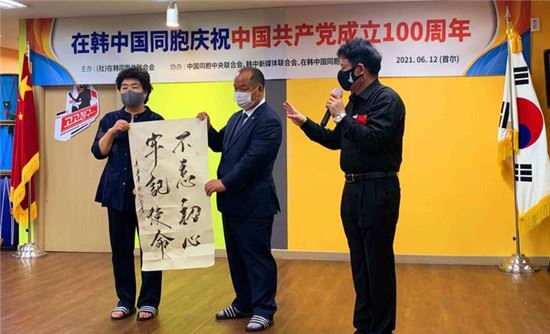 在韩中国同胞庆祝中国共产党成立100周年
主办：(社)在韩同胞总联合会
协办：中国同胞中央联合会、韩中新媒体联合会、在韩中国同胞
2021.06.12 (首尔)
고고장구
不忘初心
牢記使命